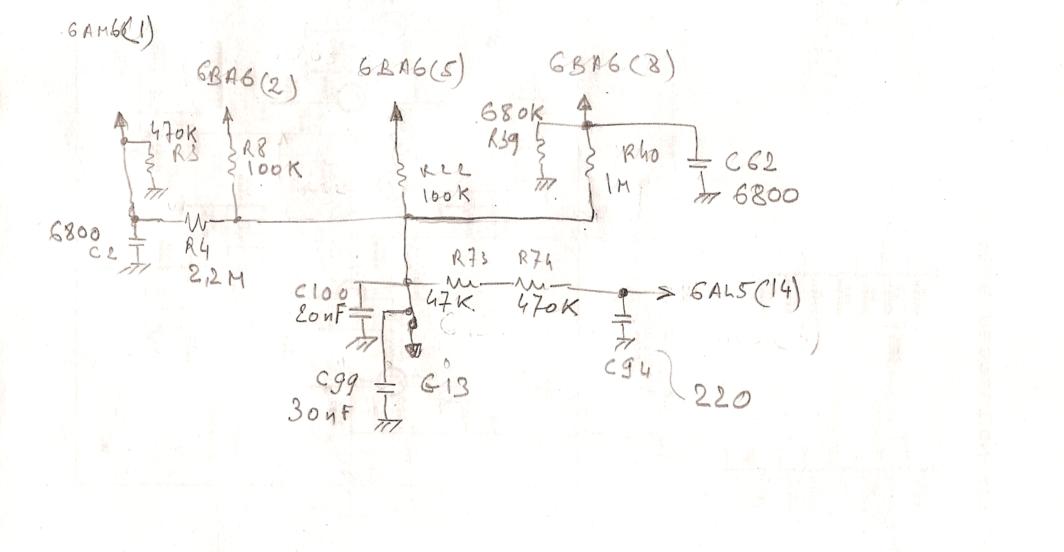 6AM6(1)
6BA6(2)
6BA6(5)
6BA6(8)
470K
R3
R8
100K
R22
100K
680K
R39
R40
1M
C62
6800
6800
C2
R4
2,2M
R73
47K
R74
470K
6AL5(14)
C100
20nF
C94
220
C99
30nF
G13